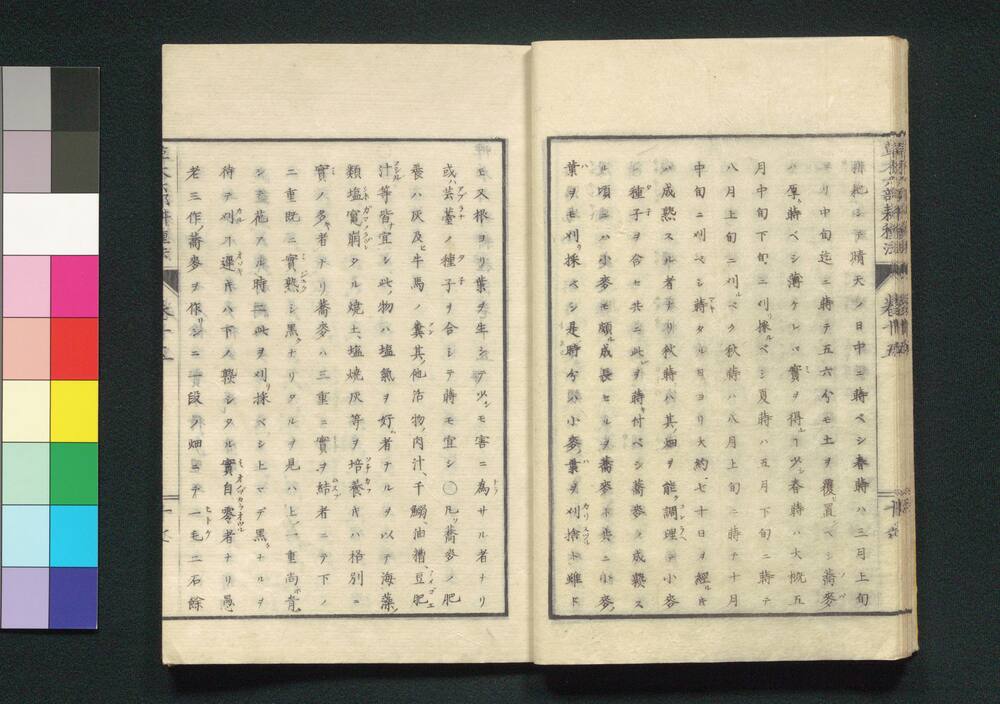 耕耙シテ晴天ノ日中ニ蒔ベシ春蒔ハ三月上旬
ヨリ中旬迄ニ蒔テ五六分モ土ヲ覆置ベシ蕎麥
ハ厚蒔ベシ薄ケレバ實ヲ得ルヿ少シ春蒔ハ大概五
月中旬下旬ニ刈採ベシ夏蒔ハ五月下旬ニ蒔テ
八月上旬ニ刈ベク秋蒔ハ八月上旬ニ蒔テ十月
中旬ニ刈ベシ蒔タル日ヨリ大約七十日ヲ經ル片
ハ成熟スル者ナリ秋蒔ハ其畑ヲ能調理テ小麥
ノ種子ヲ合セ共ニ此ヲ蒔付ベシ蕎麥ノ成熟ス
ル頃ニハ小麥モ頗成長セルヲ蕎麥ト共ニ小麥ノ
葉ヲモ刈採ベシ是時分ハ小麥ノ葉ヲ刈捨ト雖ドモ
又根ヨリ葉ヲ生シテ少シモ害ニ為サル者ナリ
或ハ芸薹ノ種子ヲ合シテ蒔モ宜シ〇凡蕎麥ノ肥
養ハ灰及ヒ牛馬ノ糞其他活物ノ肉汁、干鰯、油糟、豆肥
汁等皆宜シ此ノ物ハ塩氣ヲ好者ナルヲ以テ海藻ノ
類塩竃崩タル燒土、塩燒灰等ヲ培養片ハ格別ニ
實ノ多者ナリ蕎麥ハ三重ニ實ヲ結者ニテ下ノ
二重既ニ實熟シ黒クナリタルヲ見ハ上ノ一重尚青
シ花アル時ニ此ヲ刈採ベシ上マデ黒クナルヲ
待テ刈ヿ遲片ハ下ノ鞕シタル實自零者ナリ愚
老三作ノ蕎麥ヲ作リシニ一段ノ畑ニテ一毛二石餘